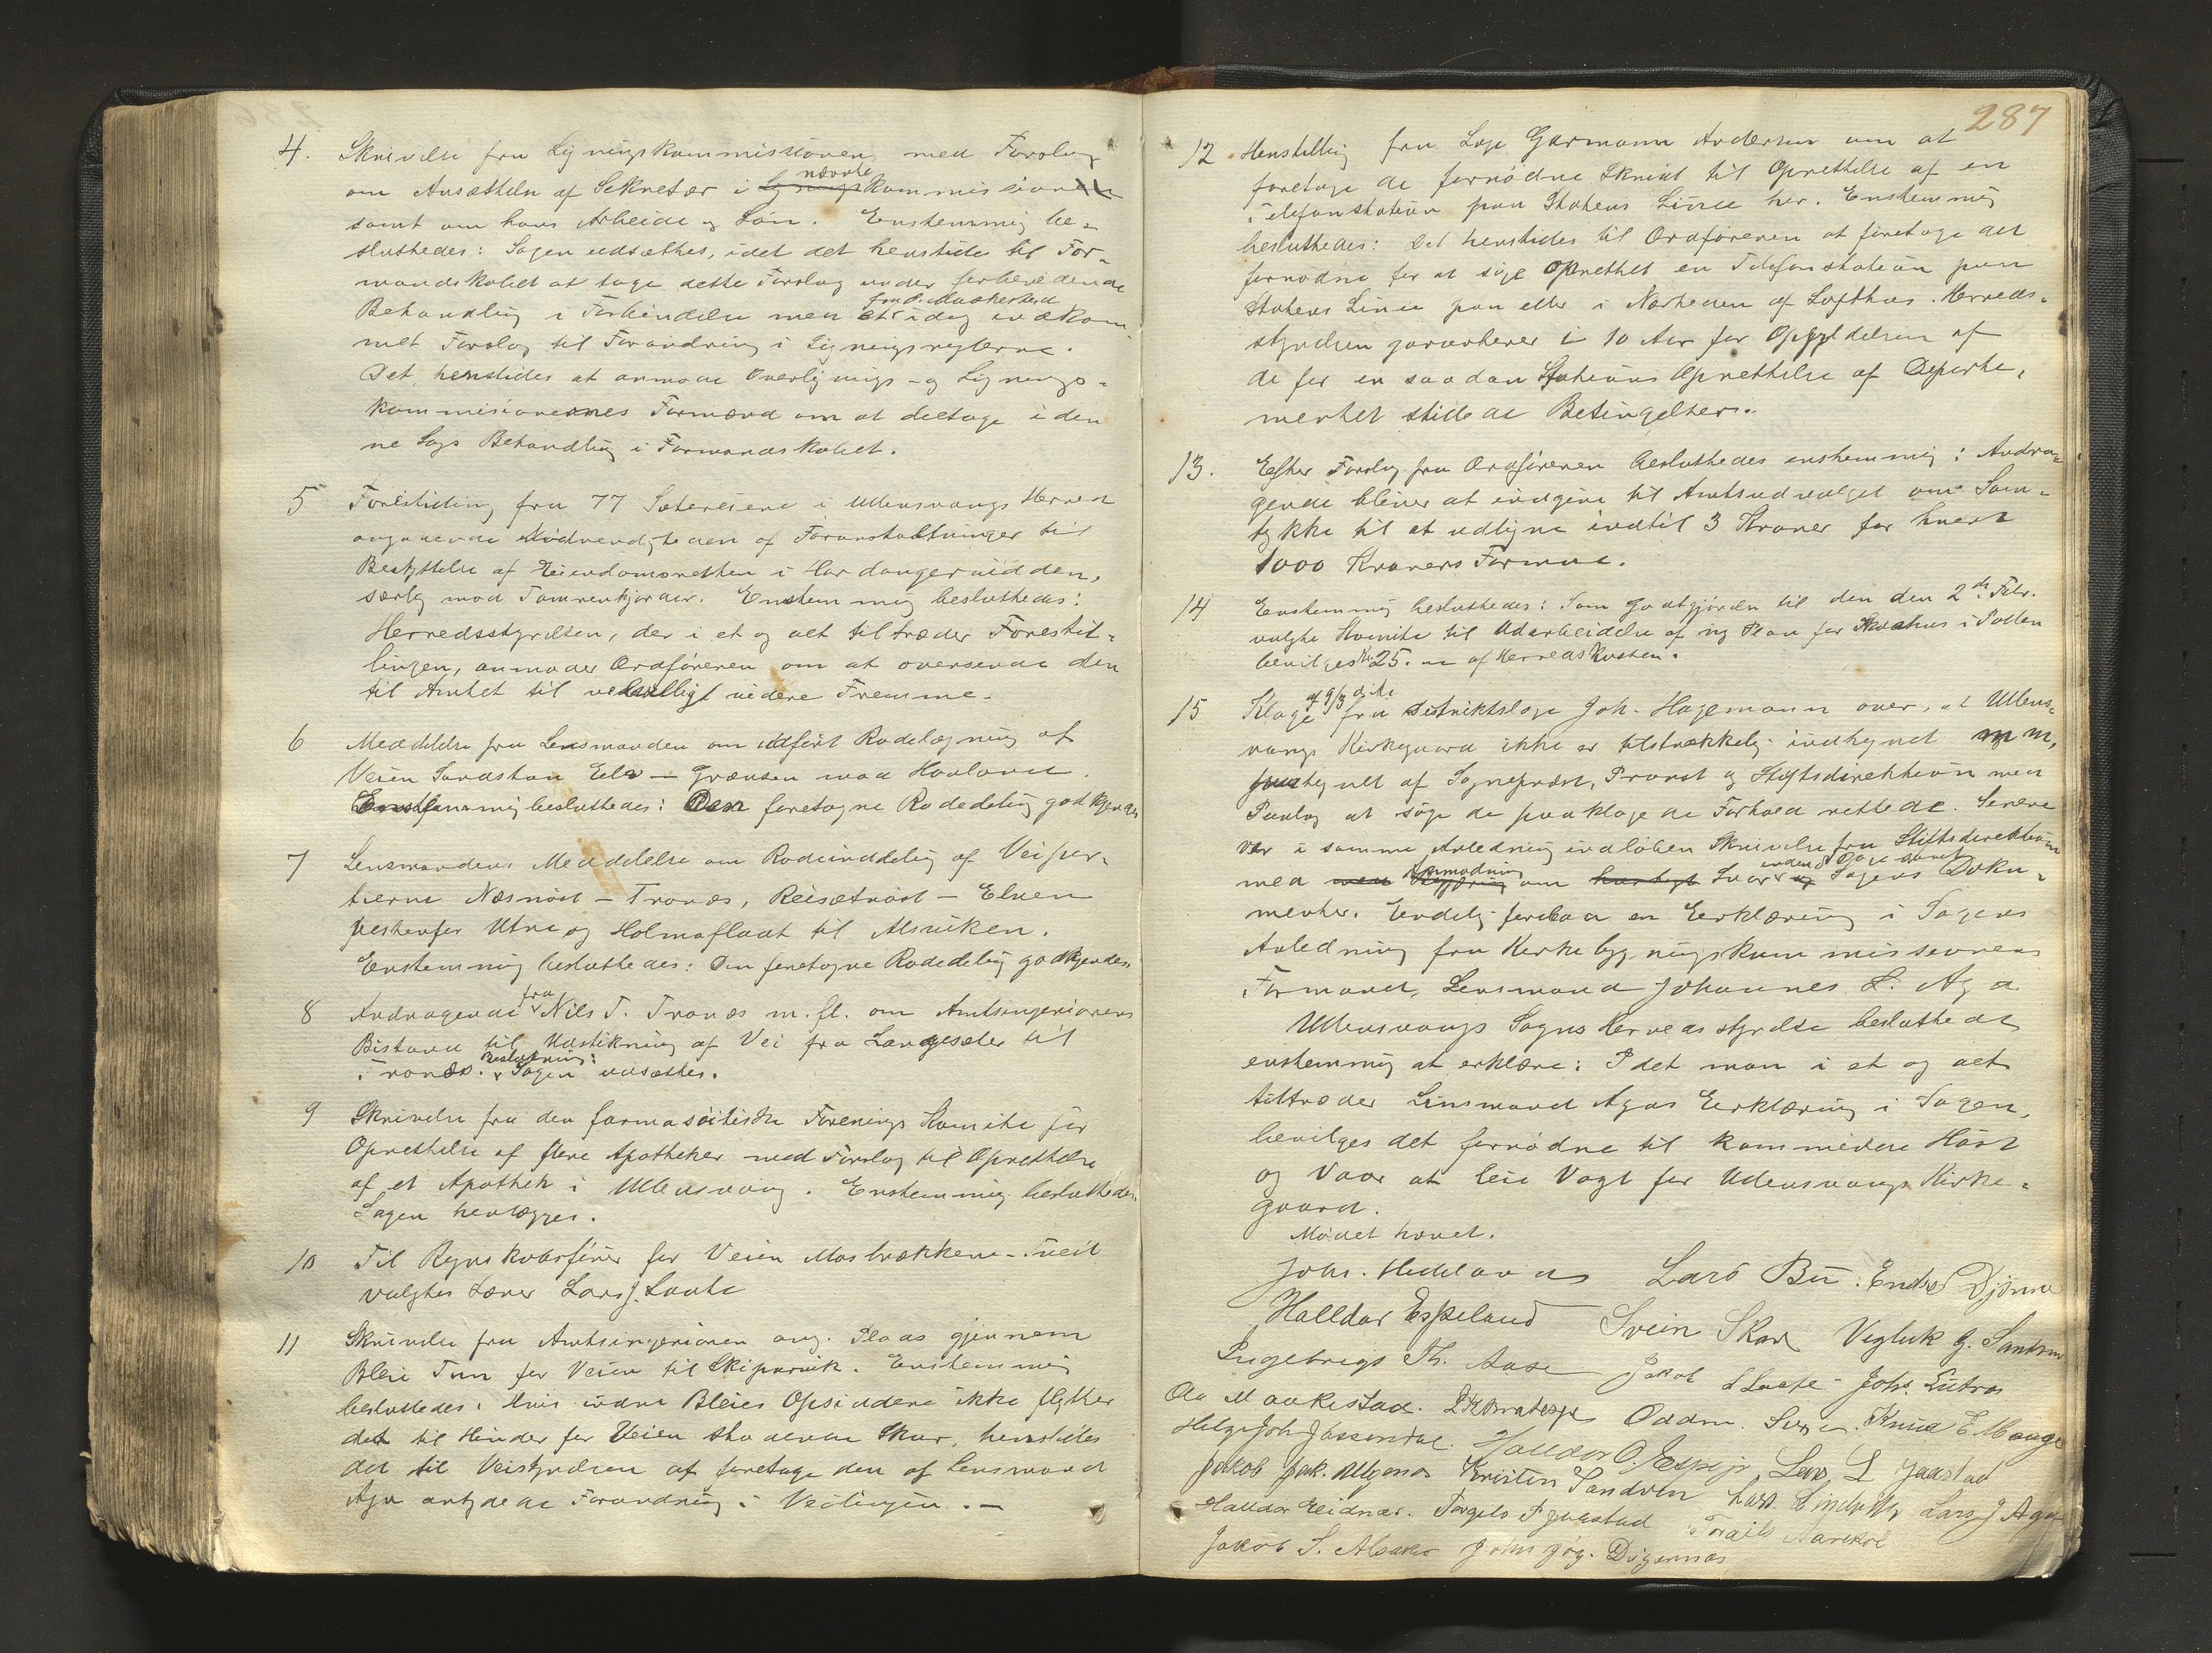 4. Skrivelse fra Ligningskommissionen med Forslag
om Ansættelse af Sekretær i nævnte kommission
samt om hans Arbeide og Løn. Enstemmig be-
sluttedes: Sagen udsættes, idet det henstilles til For-
mandskabet at tage dette Forslag under forberedende
Behandling i Forbindelse med et fra O. Maakestad idag indkom
met Forslag til Forandring i Ligningsreglerne.
Det henstilles at anmode Overlignings- og Lignings-
kommissionernes Formænd om at deltage i den
ne Sags Behandling i Formandskabet.
5 Forestilling fra 77 Sætereiere i Ullensvangs Herred
angaaende Nødvendigheden af Foranstaltninger til
Beskyttelse af Eiendomsretten i Hardangervidden,
særlig mod Tamrenhjorder. Enstemmig besluttedes:
Herredsstyrelsen, der i et og alt tiltræder Forestil-
lingen, anmoder Ordføreren om at oversende den
til Amtet til velvilligt videre Fremme.
6 Meddelelse fra Lensmanden om udført Rodelægning af
Veien Sandstøn Elv - Grænsen mod Hovland.
Enstemmig besluttedes: Den foretagne Rodedeling godkjendes
7 Lensmandens Meddelelse om Rodeinddeling af Veipar-
tierne Næsnøst - Tronæs, Reisætnøst - Elven
vestenfor Utne og Holmaflaat til Alsviken.
Enstemmig besluttedes: Den foretagne Rodedeling godkjendes.
8 Andragende fra Nils T. Tronæs m. fl. om Amtsingeniørens
Bistand til Udstikning af Vei fra Langesæter til
Tronæs. Beslutning: Sagen udsættes.
9 Skrivelse fra den farmaseitiske Forenings Komite for
Oprettelse af flere Apotheker med Forslag til Oprettelse
af et Apothek i Ullensvang. Enstemmig besluttedes
Sagen henlægges.
10 Til Regnskabsfører for Veien Mosbrækkene - Tveit
valgtes Lærer Lars J. Laate
11 Skrivelse fra Amtsingeniøren ang. Plads gjennem
Bleie Tun for Veien til Skiparvik. Enstemmig
besluttedes: Hvis indre Bleies Opsiddere ikke flytter
det til Hinder for Veien staaende Skur, henstilles
det til Veistyrelsen at foretage den af Lensmand
Aga antydede Forandring i Veilinjen. -
287
12. Henstilling fra Læge Garmann Andersen om at
foretage de fornødne Skridt til Oprettelse af en
Telefonstation paa Statens Linie her. Enstemmig
besluttedes: Det henstilles til Ordføreren at foretage det
fornødne for at søge oprettet en Telefonstation paa
Statens Linie paa eller i Nærheden af Lofthus. Herreds-
styrelsen garanterer i 10 Aar for Opfyldelsen af
de for en saadan Stations Oprettelse af Departe-
mentet stillede Betingelser.
13. Efter Forslag fra Ordføreren besluttedes enstemmig: Andra-
gende bliver at indgive til Amtsudvalget om Sam-
tykke til at udligne indtil 3 Kroner for hvert
1000 Kroners Formue.
14 Enstemmig besluttedes: Som Godtgjørelse til den den 2de Febr.
valgte Komite til Udarbeidelse af ny Plan for i
bevilges Kr. 25. af Herredskassen.
15 Klage af 9/3 fra Distriktslæge Joh. Hagemann over, at Ullens-
vangs Kirkegaard ikke er tilstrækkelig indhegnet m m,
af Sogneprest, Provst og Stiftsdirektion med
Paalæg at søge de paaklagede Forhold rettede. Senere
var i samme Anledning indløben Skrivelse fra Stiftsdirektionen
med Anmodning om Svar inden 8 Dage Sagens Doku-
menter. Endelig forelaa en Eerklæring i Sagens
Anledning fra Kirkebygningskommissionens
Formand, Lensmand Johannes L. Aga
Ullensvangs Sogns Herredsstyrelse besluttede
enstemmig at erklære: Idet man i et og alt
tiltræder Lensmand Agas Eerklæring i Sagen,
bevilges det fornødne til kommende Høst
og Vaar at leie Vagt for Ullensvangs Kirke-
gaard.
Mødet hævet.
Johs. Lars Bu. Endre Djønne
Halldor Espeland Svein Skare Vigleik G. Sandven
Ingebrigt Th. Aase Jakob Johs. Eitnæs
Ola Maakestad. Oddm. Knud E. Mauge
Helge Joh. Jaastad. Halldor O. Espe jr Lars L. Jaastad
Jakob Jak. Kristen Sandven Lars Lars J Aga
Halldor Eidnæs. Torgels T Jaastad
Jakob S. Alsaker John Jør. Digernæs